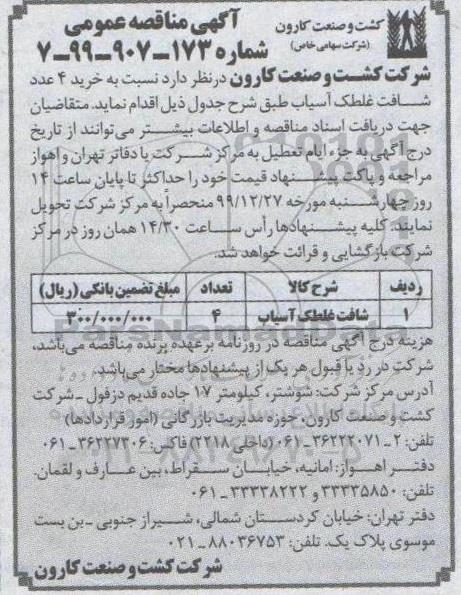 کشت و صنعت کارون
(شرکت سهامی خاص)
آگهی مناقصه عمومی
شماره ۱۷۳-۹۰۷-۹۹-۷
شرکت کشت و صنعت کارون درنظر دارد نسبت به خرید ۴ عدد
شافت غلطک آسیاب طبق شرح جدول ذیل اقدام نماید. متقاضیان
جهت دریافت اسناد مناقصه و اطلاعات بیشتر می‌توانند از تاریخ
درج آگهی به جزء ایام تعطیل به مرکز شرکت یا دفاتر تهران و اهواز
مراجعه و پاکت پیشنهاد قیمت خود را حداکثر تا پایان ساعت ۱۴
روز چهارشنبه مورخه ۹۹/۱۲/۲۷ منحصراً به مرکز شرکت تحویل
نمایند. کلیه پیشنهادها رأس ساعت ۱۴/۳۰ همان روز در مرکز
شرکت بازگشایی و قرائت خواهد شد.
ردیف شرح کالا تعداد مبلغ تضمین بانکی (ریال)
۱ شافت غلطک آسیاب ۴ ۳۰۰/۰۰۰/۰۰۰
هزینه درج آگهی مناقصه در روزنامه برعهده برنده مناقصه می‌باشد،
شرکت در رد یا قبول هر یک از پیشنهادها مختار می‌باشد.
آدرس مرکز شرکت: شوشتر، کیلومتر ۱۷ جاده قدیم دزفول ـ شرکت
کشت و صنعت کارون، حوزه مدیریت بازرگانی (امور قراردادها)
تلفن: ۲-۳۶۲۲۲۰۷۱-۰۶۱ (داخلی ۲۲۱۸) فاکس: ۳۶۲۲۷۳۰۶-۰۶۱
دفتر اهواز: امانیه، خیابان سقراط، بین عارف و لقمان.
تلفن: ۳۳۳۳۵۸۵۰ و ۳۳۳۳۸۲۲۲-۰۶۱
دفتر تهران: خیابان کردستان شمالی، شیراز جنوبی ـ بن بست
موسوی پلاک یک. تلفن: ۸۸۰۳۶۷۵۳-۰۲۱
شرکت کشت و صنعت کارون
ParsNamadData